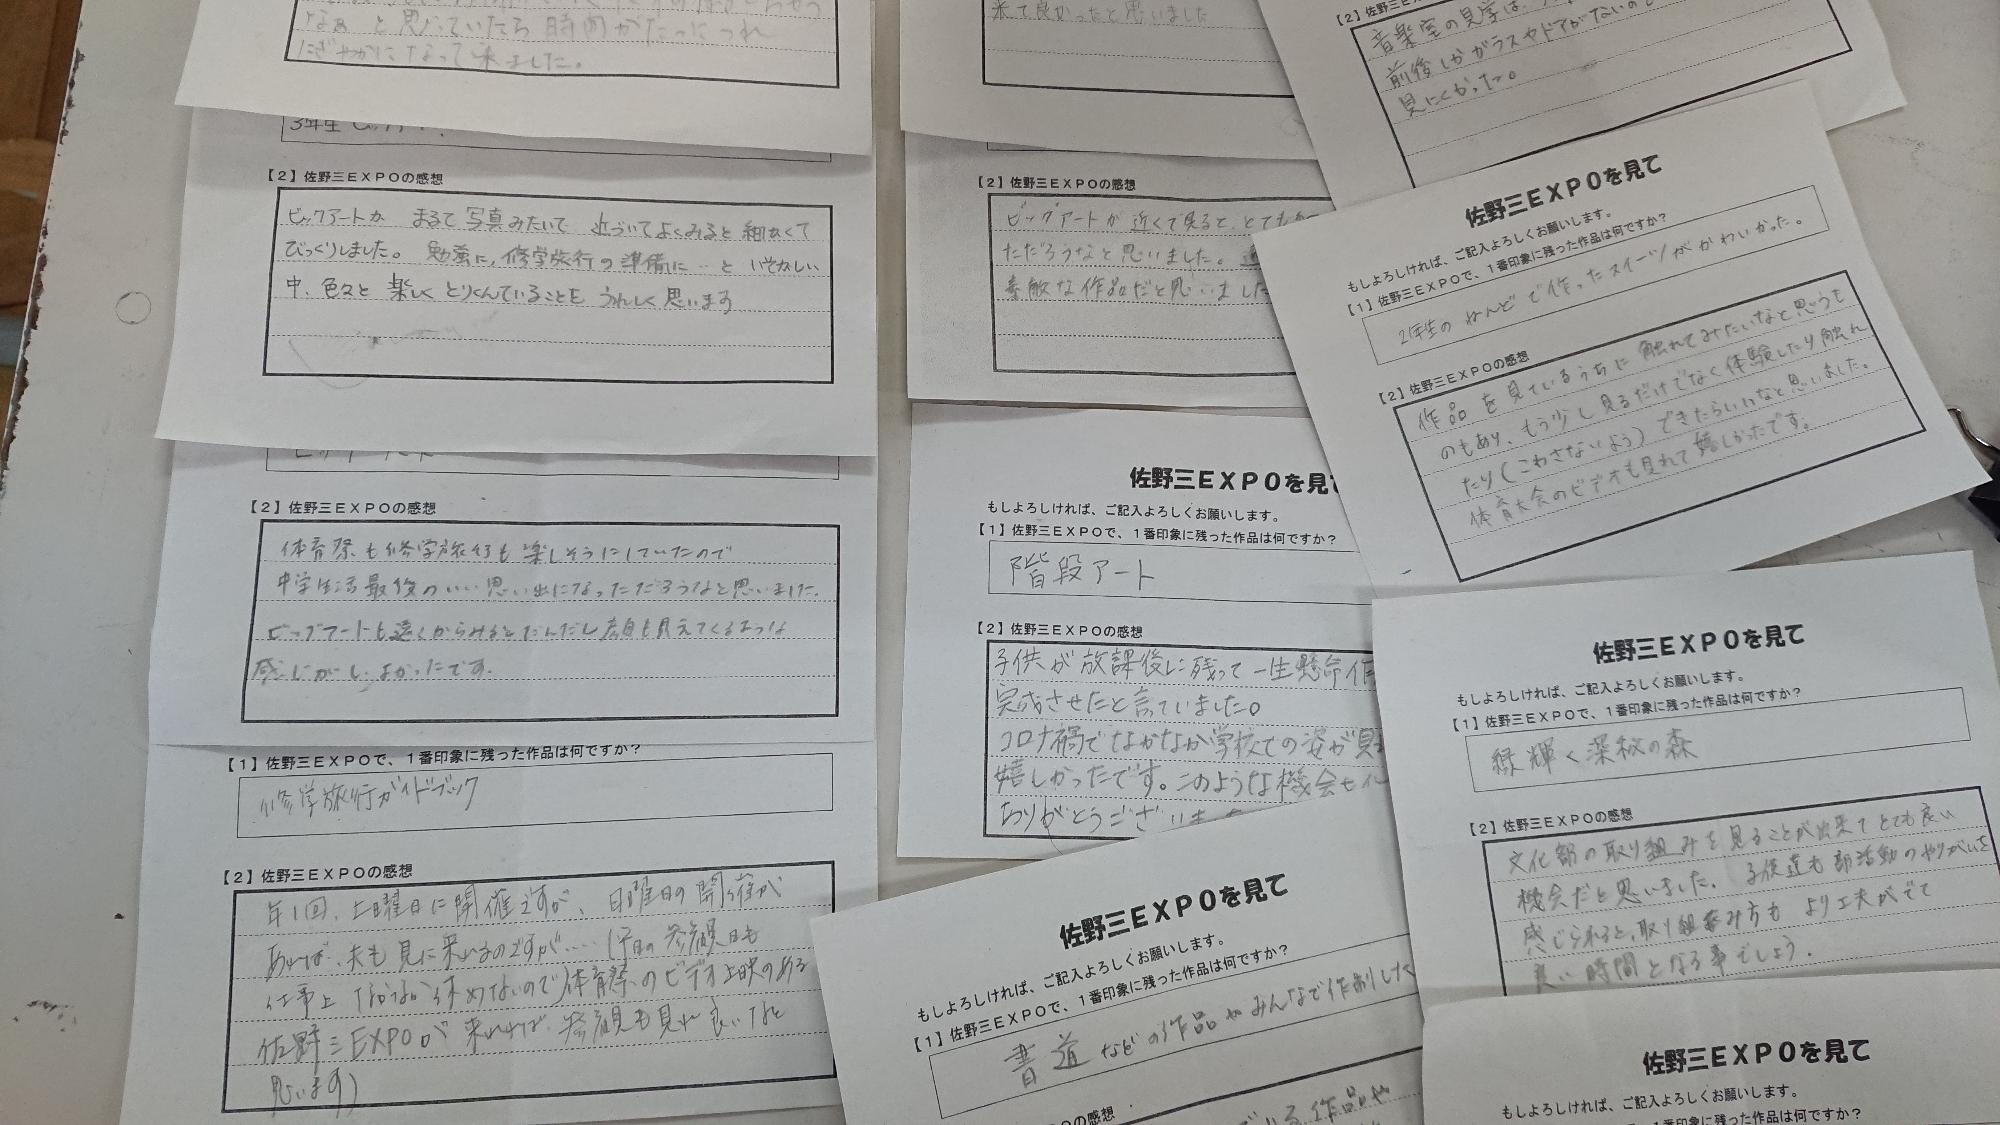 なぁ と思っていたら 時間がたつにつれ
にぎやかになって来ました。
3年生
【2】佐野三EXPOの感想
ビックアートが まるで 写真みたいで 近づいてよくみると 細かくて
びっくりしました。 勉強に、修学旅行の準備に…と いそがしい
中、色々と 楽しく とりくんでいることを うれしく 思います
【2】佐野三EXPOの感想
体育祭も修学旅行も楽しそうにしていたので
中学生活最後のいい思い出になっただろうなと思いました。
ビッグアートも遠くからみるとだんだん表情も見えてくるような
感じがし、よかったです。
【1】佐野三EXPOで、1番印象に残った作品は何ですか?
修学旅行ガイドブック
【2】佐野三EXPOの感想
年1回、土曜日に開催ですが、日曜日の開催が
あれば、夫も見に来れるのですが…… (平日の参観日も
仕事上 なかなか休めないので)体育祭のビデオ上映のある
佐野三EXPOが 来れれば、参観も見れ 良いなと
思います)
来て良かったと思いました
【2】佐野三EXPOの感想
ビッグアートが 近くで見ると、とても
ただろうなと思いました。
素敵な作品だと思いました
佐野三EXPOを見て
もしよろしければ、ご記入よろしくお願いします。
【1】佐野三EXPOで、1番印象に残った作品は何ですか?
階段アート
【2】佐野三EXPOの感想
子供が放課後に残って一生懸命作
完成させたと言っていました。
コロナ禍でなかなか学校での姿が見
嬉しかったです。このような機会を
ありがとうござい
佐野三EXPOを見て
もしよろしければ、ご記入よろしくお願いします。
【1】佐野三EXPOで、1番印象に残った作品は何ですか?
書道などの作品やみんなで作制した
の感想
いる作品や
【2】佐野三E
音楽室の見学は、
前後しかガラスやドアがないの
見にくかった。
佐野三EXPOを見て
もしよろしければ、ご記入よろしくお願いします。
【1】佐野三EXPOで、1番印象に残った作品は何ですか?
2年生の ねんどで作ったスイーツがかわいかった。
【2】佐野三EXPOの感想
作品を見ているうちに 触れてみたいなと思うも
のもあり、もう少し見るだけでなく体験したり触れ
たり(こわさないよう)できたらいいなと思いました。
体育大会のビデオも見れて嬉しかったです。
佐野三EXPOを見て
もしよろしければ、ご記入よろしくお願いします。
【1】佐野三EXPOで、1番印象に残った作品は何ですか?
緑輝く深秘の森
【2】佐野三EXPOの感想
文化部の取り組みを見ることが出来てとても良い
機会だと思いました。子供達も部活動のやりがいを
感じられると、取り組み方も より工夫がでて
良い時間となる事でしょう。
佐野三EXPOを見て
もしよろしければ、ご記入よろしくお願いします。
1番印象に残った作品は何ですか?